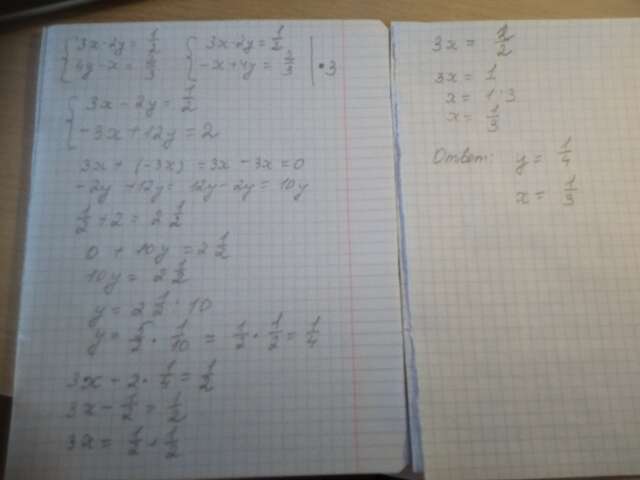 3x-2y=1/2 3x-2y=1/2
4y-x=2/3 -x+4y=2/3 | •3
3x-2y=1/2
-3x+12y=2
3x+(-3x)=3x-3x=0
-2y+12y=12y-2y=10y
1/2+2=2 1/2
0+10y=2 1/2
10y=2 1/2
y=2 1/2:10
3x-2•1/4=1/2
3x-1/2=1/2
3x=1/2+1/2
3x=2/2
3x=1
x=1:3
x=1/3
Ответ: y=1/4
x=1/3